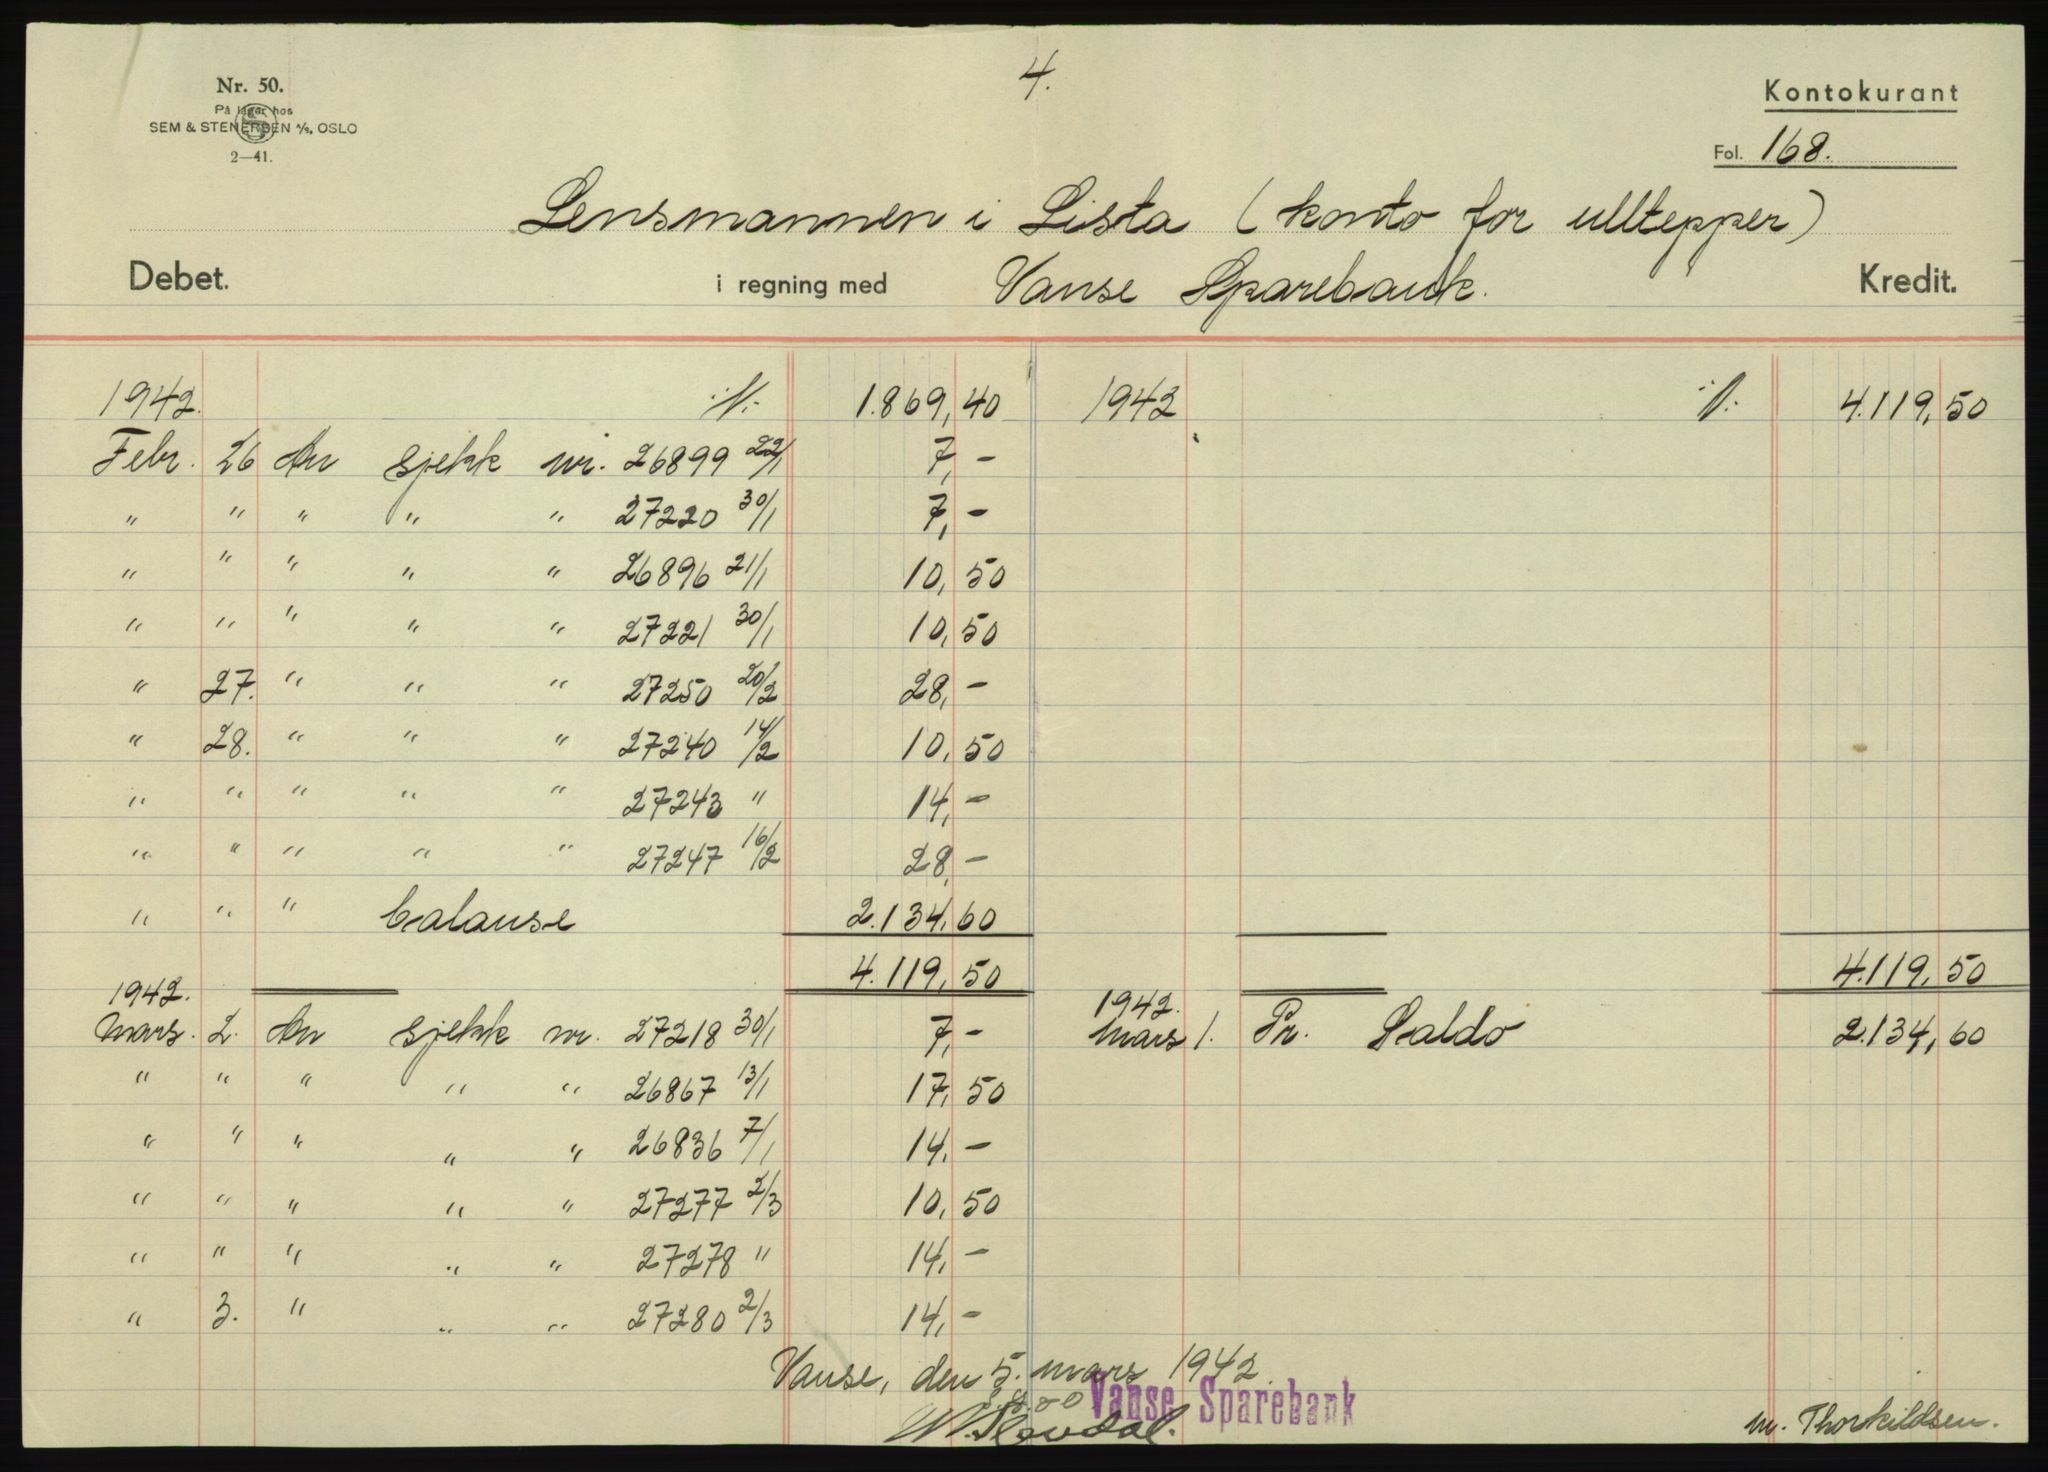 4.
Nr. 50.
På lager hos
SEM & STENERSEN A/S, OSLO
2—41.
Kontokurant
Fol. 168.
Lensmannen i Lista (konto for ulltepper)
Debet. i regning med Vanse Sparebank. Kredit.
1942. 1.869,40 1942 4.119,50
Febr. 26 An sjekk nr. 26899 22/1 7,-
" " " " " 27220 30/1 7,-
" " " " " 26896 21/1 10,50
" " " " " 27221 30/1 10,50
" 27. " " " 27250 20/2 28,-
" 28. " " " 27240 14/2 10,50
" " " " " 27243 " 14,-
" " " " " 27247 16/2 28,-
" " " balanse 2.134,60
4.119,50 4.119,50
1942. 1942.
Mars. 2. An sjekk nr. 27218 30/1 7,- Mars 1. Pr. Saldo 2.134,60
" " " " " 26867 13/1 17,50
" " " " " 26836 7/1 14.-
" " " " " 27277 2/3 10,50
" " " " " 27278 " 14,-
" 3. " " " 27280 2/3 14,-
Vanse, den 5. mars 1942.
Vanse Sparebank
M. Thorkildsen.